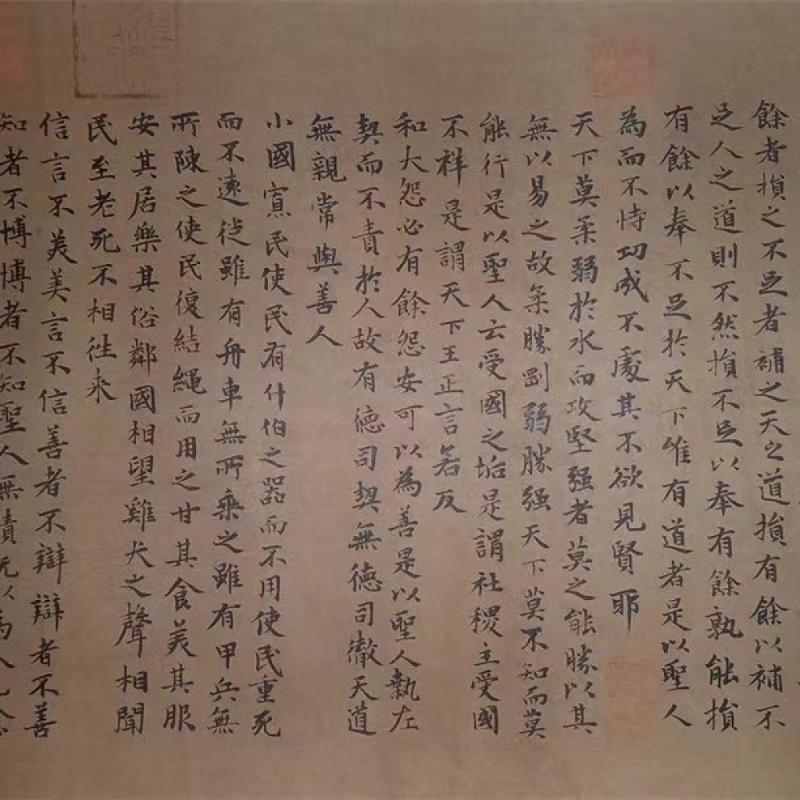 餘者損之不足者補之天之道損有餘以補不
足人之道則不然損不足以奉有餘孰能損
有餘以奉不足於天下唯有道者是以聖人
為而不恃功成不處其不欲見賢耶
天下莫柔弱於水而攻堅强者莫之能勝以其
無以易之故柔勝剛弱勝强天下莫不知而莫
能行是以聖人云受國之垢是謂社稷主受國
不祥是謂天下王正言若反
和大怨必有餘怨安可以為善是以聖人執左
契而不責於人故有德司契無德司徹天道
無親常與善人
小國寡民使民有什伯之器而不用使民重死
而不遠徙雖有舟車無所乘之雖有甲兵無
所陳之使民復結繩而用之甘其食美其服
安其居樂其俗鄰國相望雞犬之聲相聞
民至老死不相往来
信言不美美言不信善者不辯辯者不善
知者不博博者不知聖人無積既以為人己愈